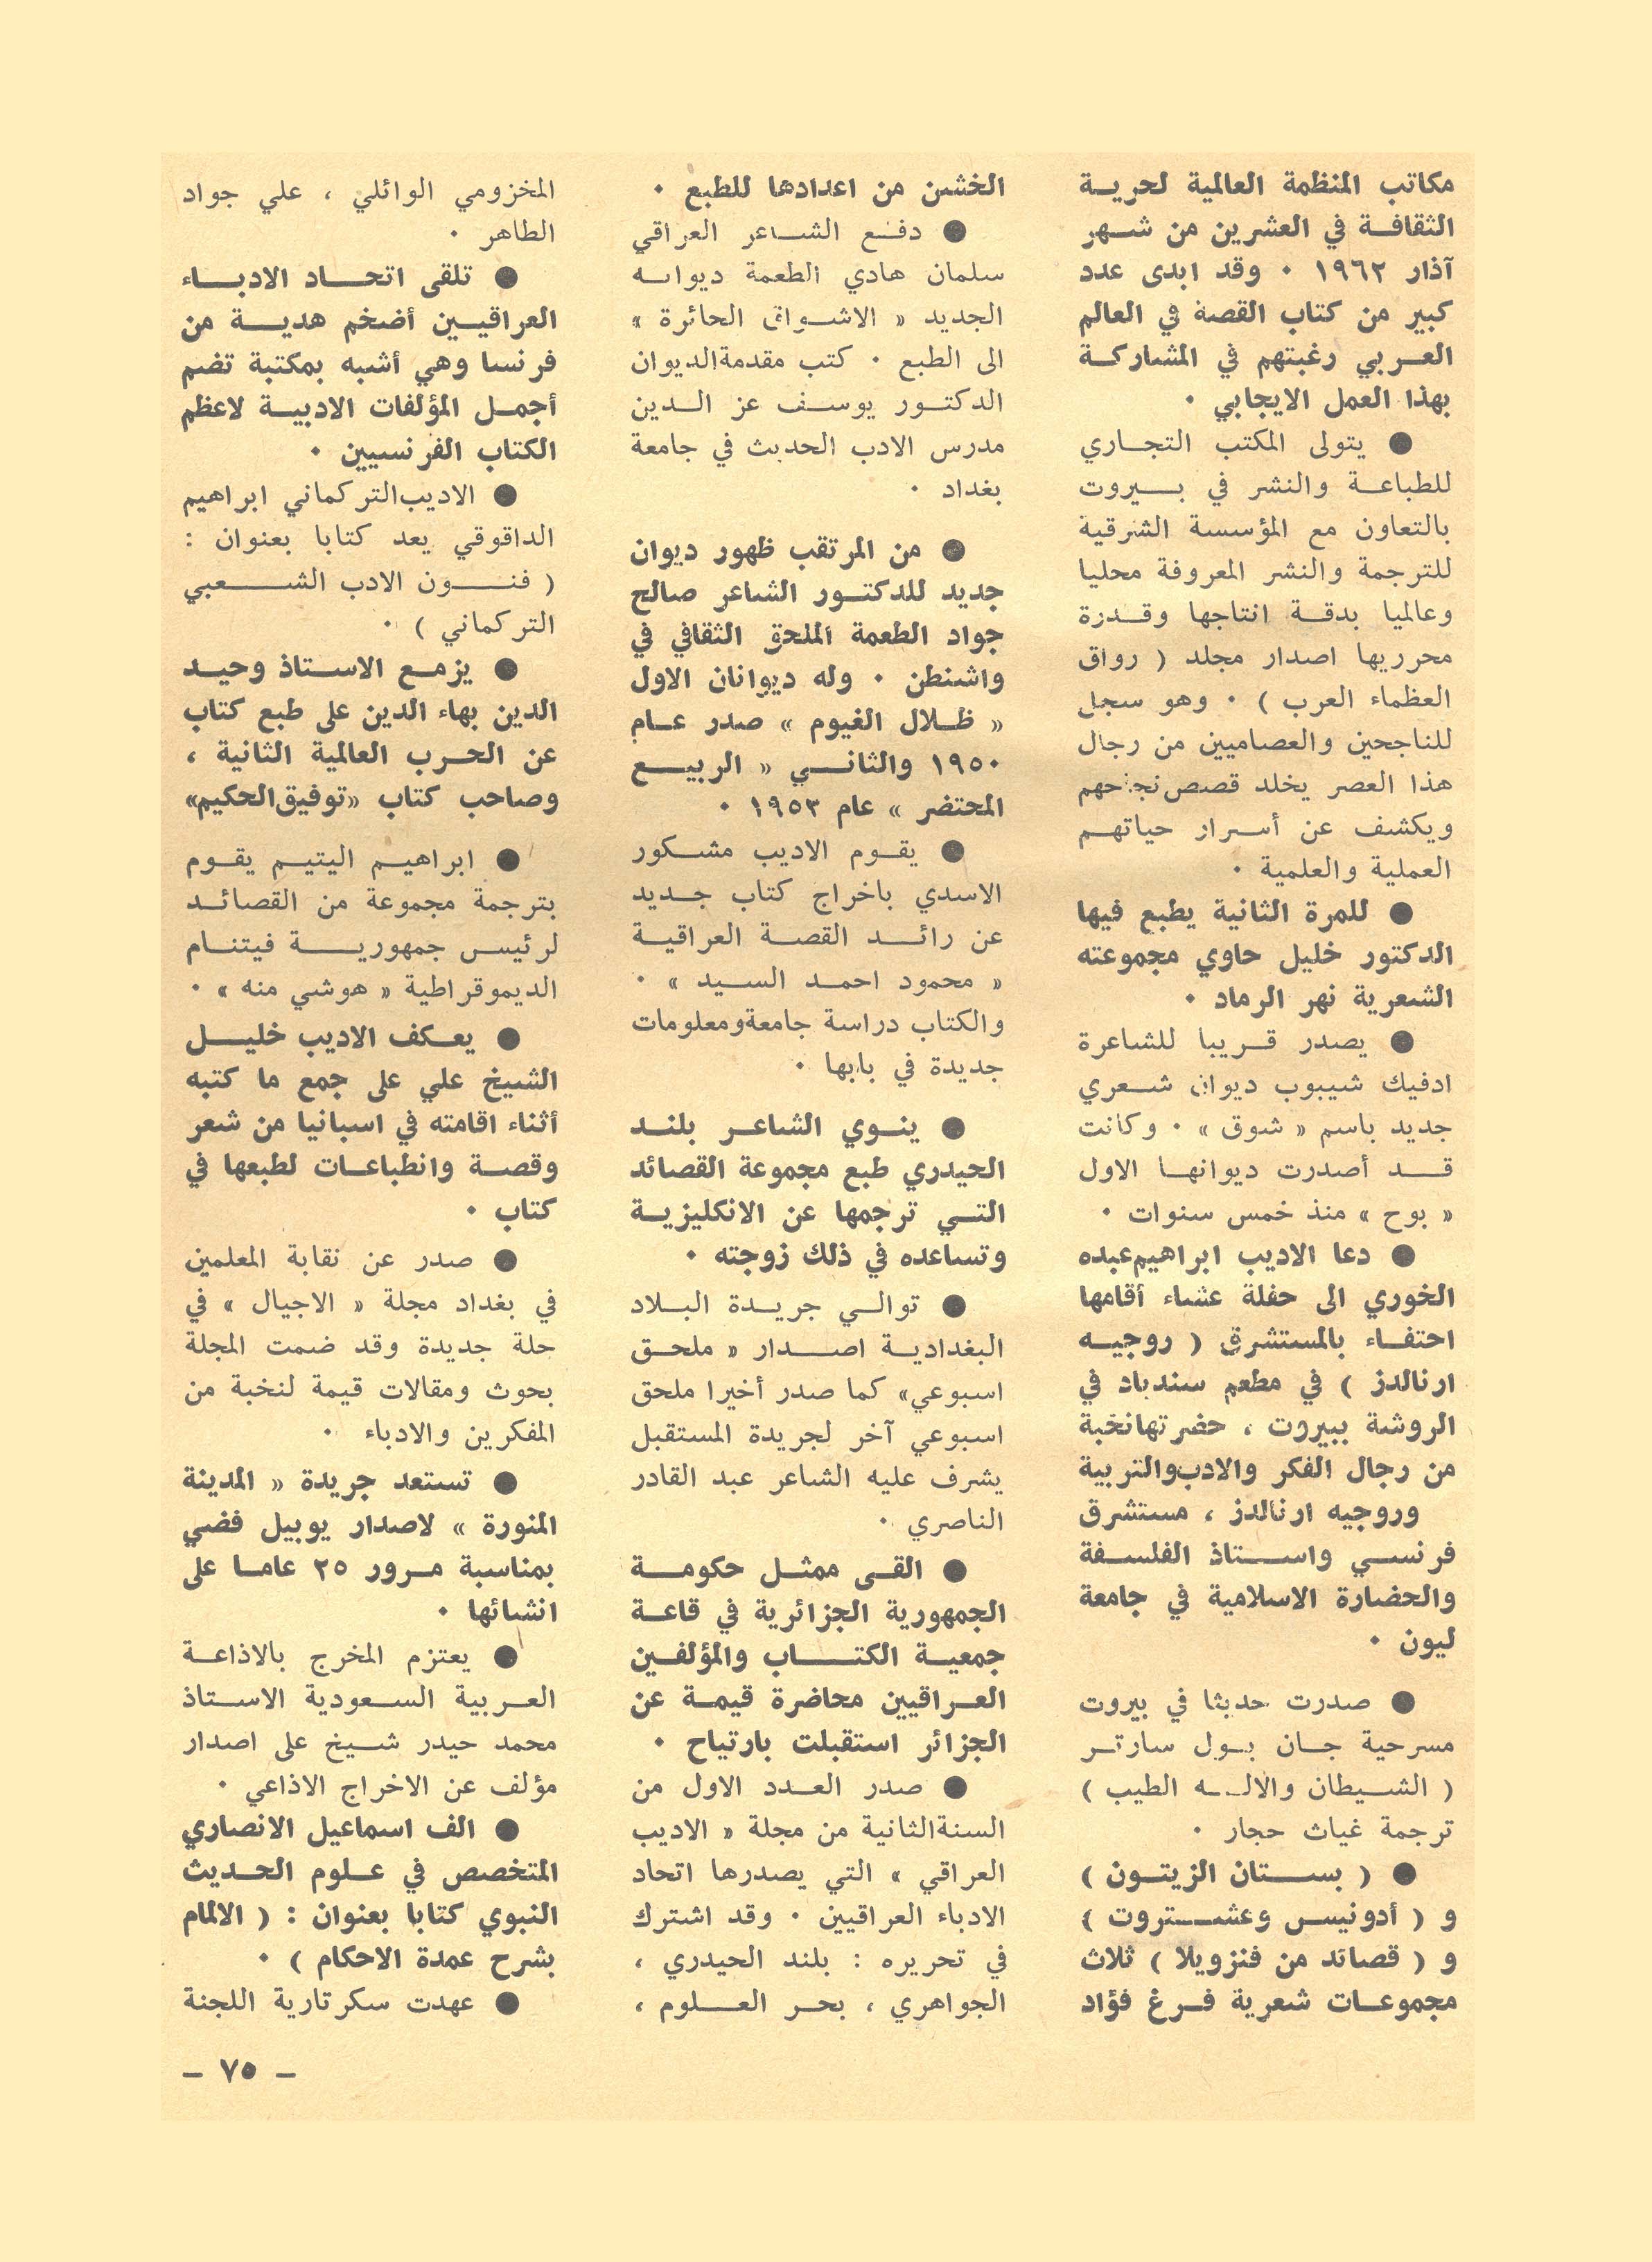 مكاتب المنظمة العالمية لحرية
الثقافة في العشرين من شهر
آذار ١٩٦٢ ٠ وقد ابدى عدد
كبير من كتاب القصة في العالم
العربي رغبتهم في المشاركة
بهذا العمل الايجابي ٠
● يتولى المكتب التجاري
للطباعة والنشر في بيروت
بالتعاون مع المؤسسة الشرقية
للترجمة والنشر المعروفة محليا
وعالميا بدقة انتاجها وقدرة
محرريها اصدار مجلد ( رواق
العظماء العرب ) ٠ وهو سجل
للناجحين والعصاميين من رجال
هذا العصر يخلد قصص نجاحهم
ويكشف عن أسرار حياتهم
العملية والعلمية ٠
● للمرة الثانية يطبع فيها
الدكتور خليل حاوي مجموعته
الشعرية نهر الرماد ٠
● يصدر قريبا للشاعرة
ادفيك شيبوب ديوان شعري
جديد باسم « شوق » ٠ وكانت
قد أصدرت ديوانها الاول
« بوح » منذ خمس سنوات ٠
● دعا الاديب ابراهيم عبده
الخوري الى حفلة عشاء أقامها
احتفاء بالمستشرق ( روجيه
ارنالدز ) في مطعم سندباد في
الروشة ببيروت ، حضرتها نخبة
من رجال الفكر والادب والتربية
وروجيه ارنالدز ، مستشرق
فرنسي واستاذ الفلسفة
والحضارة الاسلامية في جامعة
ليون ٠
● صدرت حديثا في بيروت
مسرحية جان بول سارتر
( الشيطان والاله الطيب )
ترجمة غياث حجار ٠
● ( بستان الزيتون )
و ( أدونيس وعشتروت )
و ( قصائد من فنزويلا ) ثلاث
مجموعات شعرية فرغ فؤاد
الخشن من اعدادها للطبع ٠
● دفع الشاعر العراقي
سلمان هادي الطعمة ديوانه
الجديد « الاشواق الحائرة »
الى الطبع ٠ كتب مقدمة الديوان
الدكتور يوسف عز الدين
مدرس الادب الحديث في جامعة
بغداد ٠
● من المرتقب ظهور ديوان
جديد للدكتور الشاعر صالح
جواد الطعمة الملحق الثقافي في
واشنطن ٠ وله ديوانان الاول
« ظلال الغيوم » صدر عام
١٩٥٠ والثاني « الربيع
المحتضر » عام ١٩٥٣ ٠
● يقوم الاديب مشكور
الاسدي باخراج كتاب جديد
عن رائد القصة العراقية
« محمود احمد السيد » ٠
والكتاب دراسة جامعة ومعلومات
جديدة في بابها ٠
● ينوي الشاعر بلند
الحيدري طبع مجموعة القصائد
التي ترجمها عن الانكليزية
وتساعده في ذلك زوجته ٠
● توالي جريدة البلاد
البغدادية اصدار « ملحق
اسبوعي» كما صدر أخيرا ملحق
اسبوعي آخر لجريدة المستقبل
يشرف عليه الشاعر عبد القادر
الناصري ٠
● القى ممثل حكومة
الجمهورية الجزائرية في قاعة
جمعية الكتاب والمؤلفين
العراقيين محاضرة قيمة عن
الجزائر استقبلت بارتياح ٠
● صدر العدد الاول من
السنة الثانية من مجلة « الاديب
العراقي » التي يصدرها اتحاد
الادباء العراقيين ٠ وقد اشترك
في تحريره : بلند الحيدري ،
الجواهري ، بحر العلوم ،
المخزومي الوائلي ، علي جواد
الطاهر ٠
● تلقى اتحاد الادباء
العراقيين أضخم هدية من
فرنسا وهي أشبه بمكتبة تضم
أجمل المؤلفات الادبية لاعظم
الكتاب الفرنسيين ٠
● الاديب التركماني ابراهيم
الداقوقي يعد كتابا بعنوان :
( فنون الادب الشعبي
التركماني ) ٠
● يزمع الاستاذ وحيد
الدين بهاء الدين على طبع كتاب
عن الحرب العالمية الثانية ،
وصاحب كتاب «توفيق الحكيم»
● ابراهيم اليتيم يقوم
بترجمة مجموعة من القصائد
لرئيس جمهورية فيتنام
الديموقراطية « هوشي منه » ٠
● يعكف الاديب خليل
الشيخ علي على جمع ما كتبه
أثناء اقامته في اسبانيا من شعر
وقصة وانطباعات لطبعها في
كتاب ٠
● صدر عن نقابة المعلمين
في بغداد مجلة « الاجيال » في
حلة جديدة وقد ضمت المجلة
بحوث ومقالات قيمة لنخبة من
المفكرين والادباء ٠
● تستعد جريدة « المدينة
المنورة » لاصدار يوبيل فضي
بمناسبة مرور ٢٥ عاما على
انشائها ٠
● يعتزم المخرج بالاذاعة
العربية السعودية الاستاذ
محمد حيدر شيخ على اصدار
مؤلف عن الاخراج الاذاعي ٠
● الف اسماعيل الانصاري
المتخصص في علوم الحديث
النبوي كتابا بعنوان : ( الالمام
بشرح عمدة الاحكام ) ٠
● عهدت سكرتارية اللجنة
– ٧٥ –